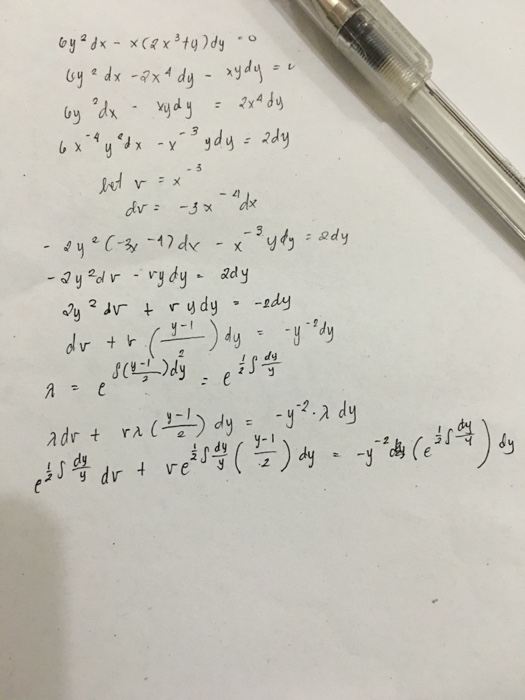 6y²dx - x(2x³+y)dy = 0
6y²dx - 2x⁴dy - xydy = 0
6y²dx - xydy = 2x⁴dy
6x⁻⁴y²dx - x⁻³ydy = 2dy
let v = x⁻³
dv = -3x⁻⁴dx
-2y²(-3x⁻⁴)dx - x⁻³ydy = 2dy
-2y²dv - vydy = 2dy
2y²dv + vydy = -2dy
dv + v(y⁻¹/2)dy = -y⁻²dy
λ = e^∫(y⁻¹/2)dy = e^½∫dy/y
λdv + vλ(y⁻¹/2)dy = -y⁻²·λdy
e^½∫dy/y dv + ve^½∫dy/y (y⁻¹/2)dy = -y⁻²(e^½∫dy/y)dy